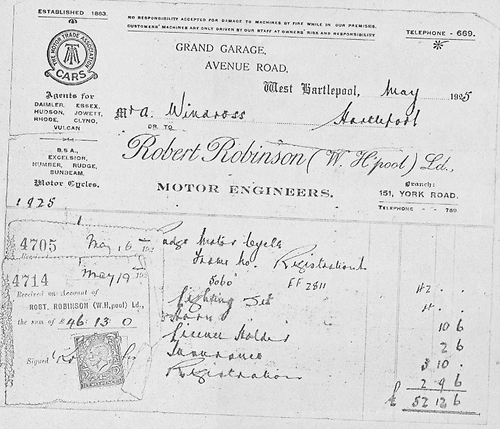 ESTABLISHED 1883.
NO RESPONSIBILITY ACCEPTED FOR DAMAGE TO MACHINES BY FIRE WHILE IN OUR PREMISES.
CUSTOMERS' MACHINES ARE ONLY DRIVEN BY OUR STAFF AT OWNERS' RISK AND RESPONSIBILITY
TELEPHONE - 669.
THE MOTOR TRADE ASSOCIATION
CARS
GRAND GARAGE,
AVENUE ROAD,
West Hartlepool, May 1925
Agents for
DAIMLER, ESSEX,
HUDSON, JOWETT,
RHODE, CLYNO,
VULCAN
B.S.A.,
EXCELSIOR,
HUMBER, RUDGE,
SUNBEAM.
Motor Cycles.
Mr A. Windross Hartlepool
DR TO
Robert Robinson (W. H'pool) Ld.,
MOTOR ENGINEERS.
Branch:
151, YORK ROAD.
TELEPHONE - - 769
1925
4705 May 16
4714 May 19
Received on Account of
ROBT. ROBINSON (W.H.pool) Ld.,
the sum of £46: 13: 0
Signed
Motor Cycle
Frame No. Registration
EF 2811
42 . .
Lighting Set
Horn 10 6
Licence Holder 2 6
Insurance 3 10 .
Registration 2 9 6
£ 52 12 6